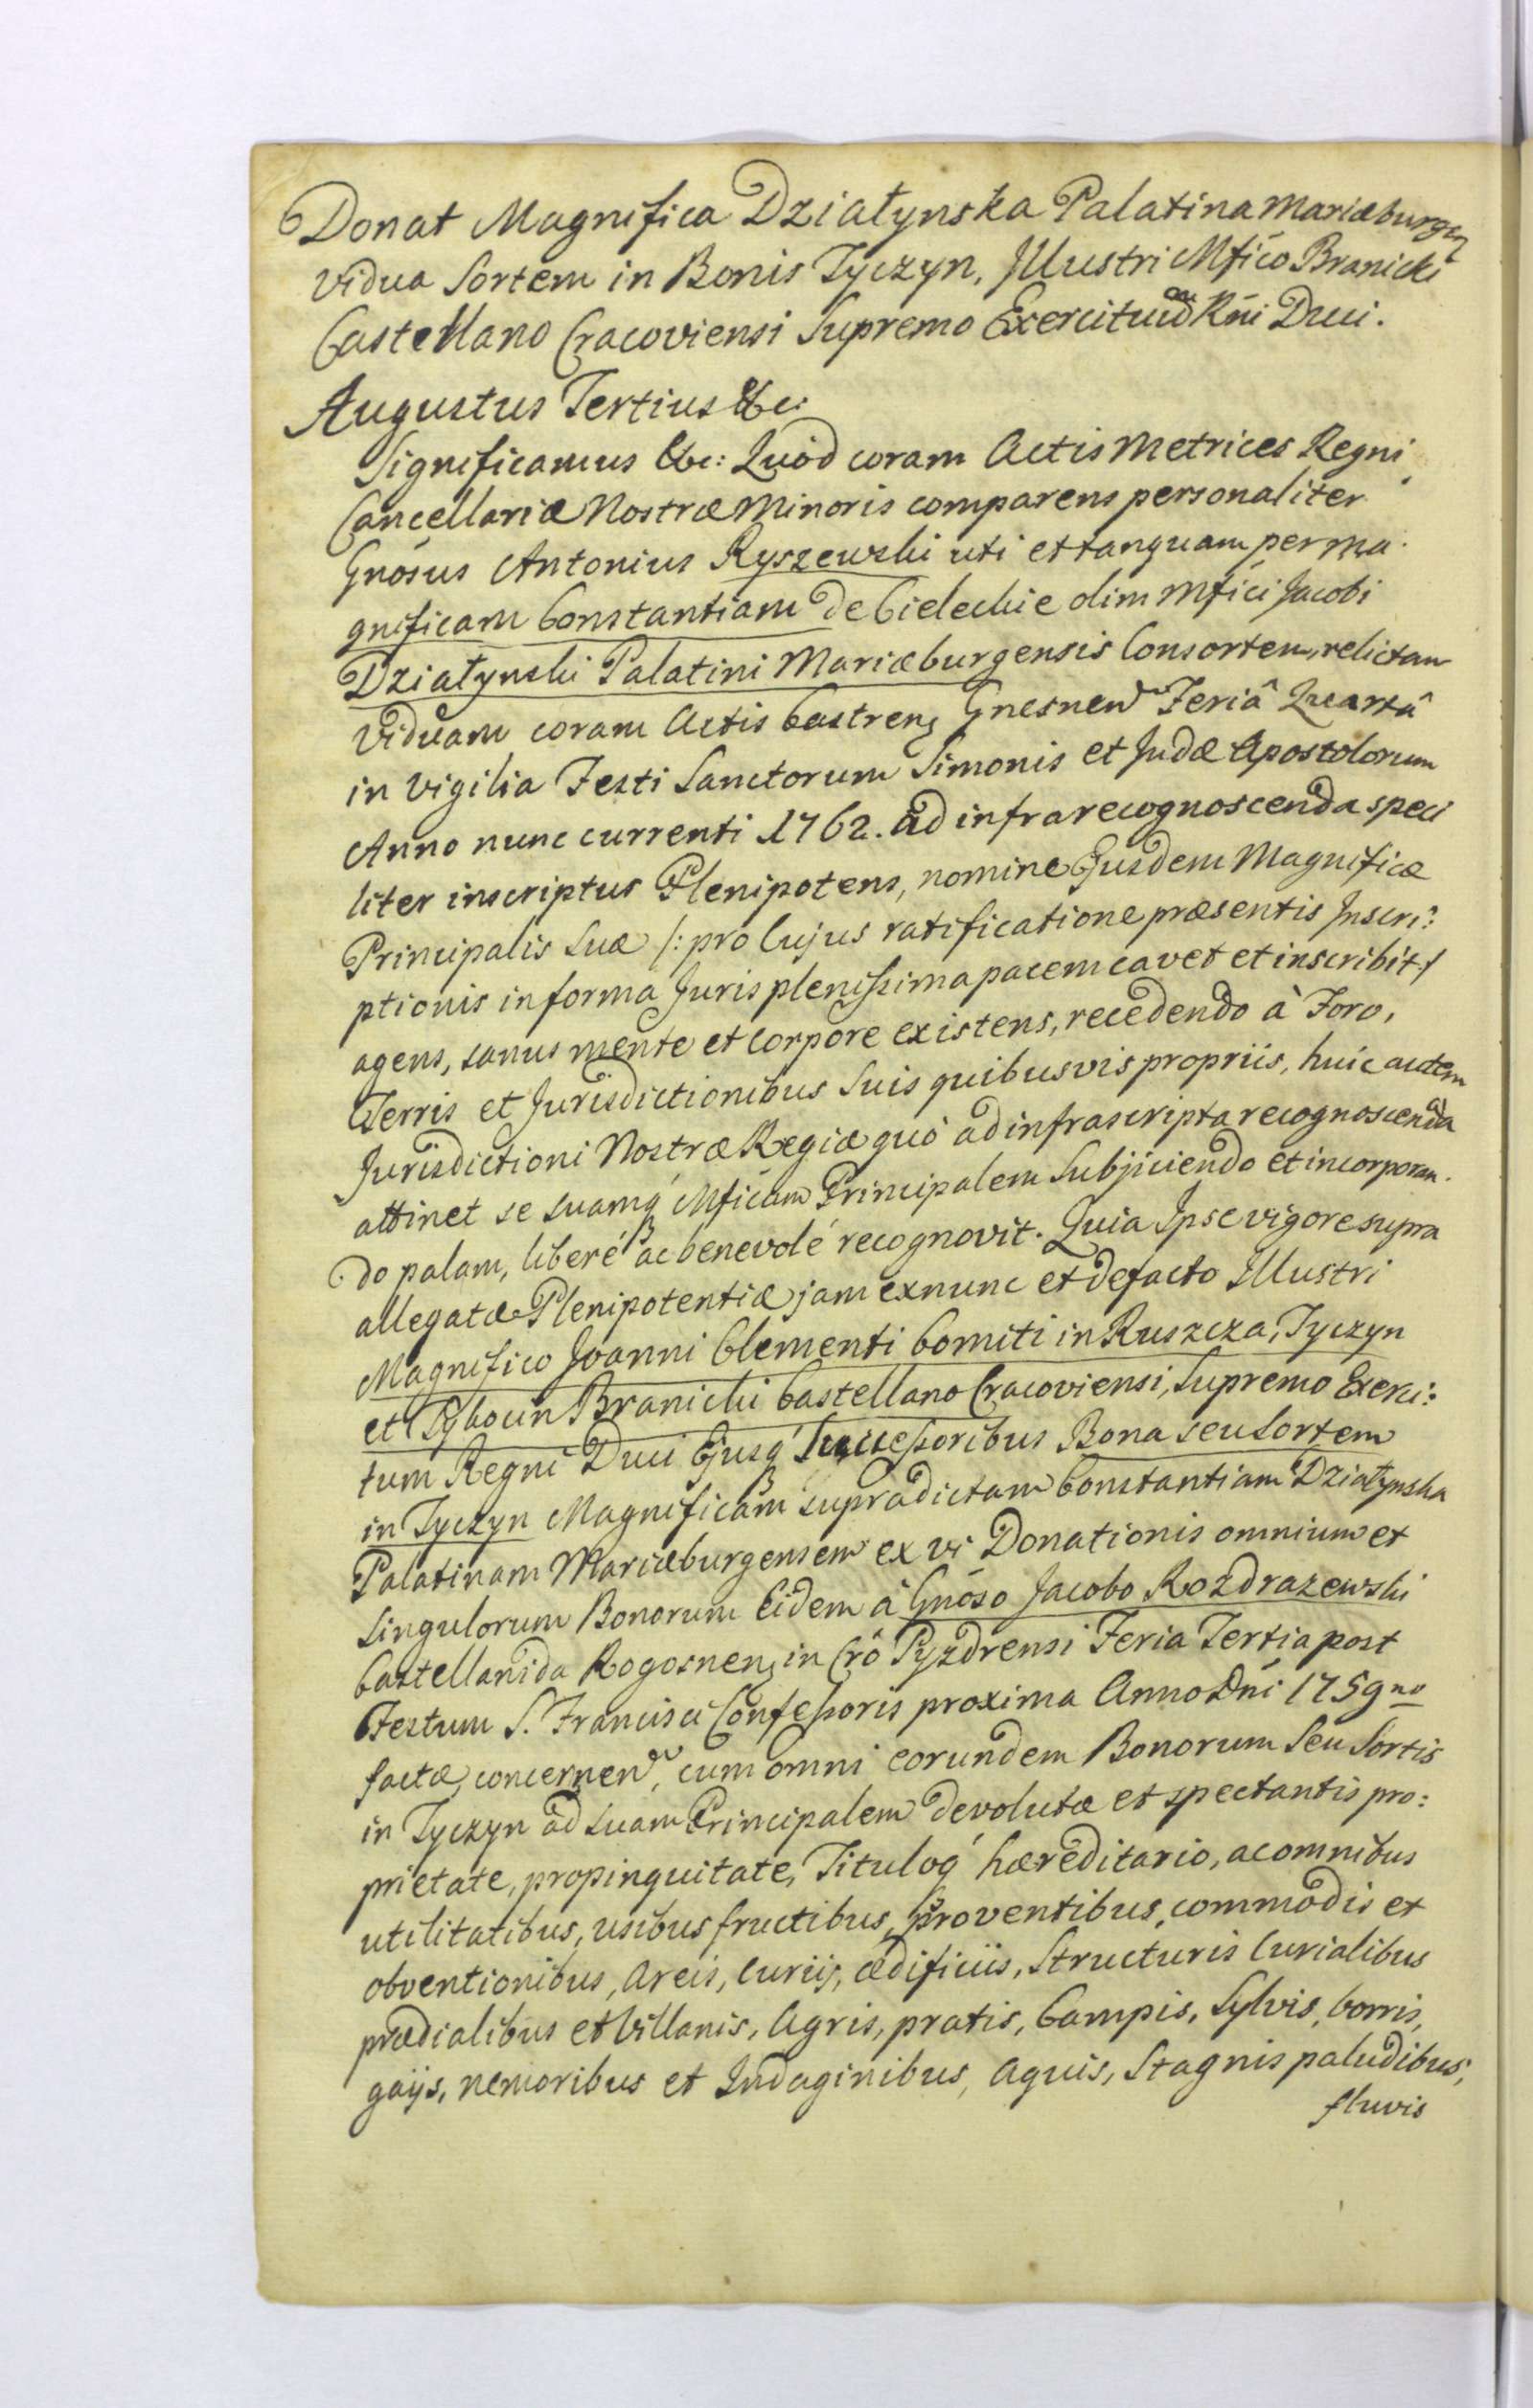 Donat Magnifica Działynska Palatina Mariæburgen
Vidua Sortem in Bonis Tyczyn, Illustri Mfico Branicki
Castellano Cracoviensi Supremo Exercituu Rñi Duci.
Augustus Tertius &c:
Significamus &c: Quòd coram Actis Metrices Regni
Cancellariæ Nostræ Minoris comparens personaliter
Gnosus Antonius Ryszewski uti et tanquam per Ma-
gnificam Constantiam de Cieleckie olim Mfici Jacobi
Działynski Palatini Mariæburgensis Consortem, relictam
Viduam coram Actis Castren, Gnesnen Feriâ Quartâ
in Vigilia Festi Sanctorum Simonis et Judæ Apostolorum
Anno nunc currenti 1762. ad infra recognoscenda speci
liter inscriptus Plenipotens, nomine Ejusdem Magnificæ
Principalis Suæ /: pro Cujus ratificatione præsentis Inscri:
ptionis in forma Juris plenissima pacem cavet et inscribit :/
agens, sanus mente et Corpore existens, recedendo à Foro,
Terris et Jurisdictionibus Suis quibusvis propriis, huic autem
Jurisdictioni Nostræ Regiæ quò ad infrascripta recognoscenda
attinet se suamq́ Mficam Principalem Subjiciendo et incorporan-
do palam, liberé ac benevolé recognovit. Quia Ipse vigore supra
allegatæ Plenipotentiæ jam exnunc et defacto Illustri
Magnifico Joanni Clementi Comiti in Ruszcza, Tyczyn
et Tykocin Branicki Castellano Cracoviensi, Supremo Exerci:
tum Regni Duci Ejusq́ Successoribus Bona seu Sortem
in Tyczyn Magnificam supradictam Constantiam Działynska
Palatinam Mariæburgensem ex vi Donationis omnium et
Singulorum Bonorum Eidem à Gnoso Jacobo Rozdrazewski
Castellanida Rogosnen, in Cro Pyzdrensi Feria Tertia post
Festum S. Francisci Confessoris proxima Anno Dñi 1759no
factæ, concernen, cum omni eorundem Bonorum Seu Sortis
in Tyczyn ad Suam Principalem devolutæ et spectantis pro:
prietate, propinquitate, Tituloq́ hæreditario, ac omnibus
utilitatibus, usibus fructibus, proventibus, commodis et
obventionibus, Areis, Curiis, ædificiis, Structuris Curialibus
prædialibus et Villanis, Agris, pratis, Campis, Sylvis, borris,
gaijs, nemoribus et Indaginibus, Aquis, Stagnis paludibus,
fluvis